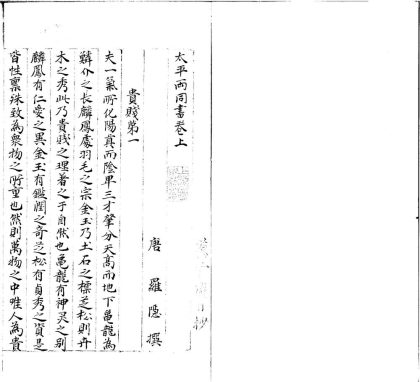 太平兩同書卷上
唐羅隱撰
貴賤第一
夫一氣所化陽真而陰卑三才肇分天高而地下龜龍為
鱗介之長麟鳳處羽毛之宗金玉乃土石之標芝松則卉
木之秀此乃貴賤之理著之于自然也龜龍有神灵之別
麟鳳有仁愛之異金玉有鑑潤之奇芝松有貞秀之資是
皆性禀殊致為衆物之所重也然則萬物之中唯人為貴